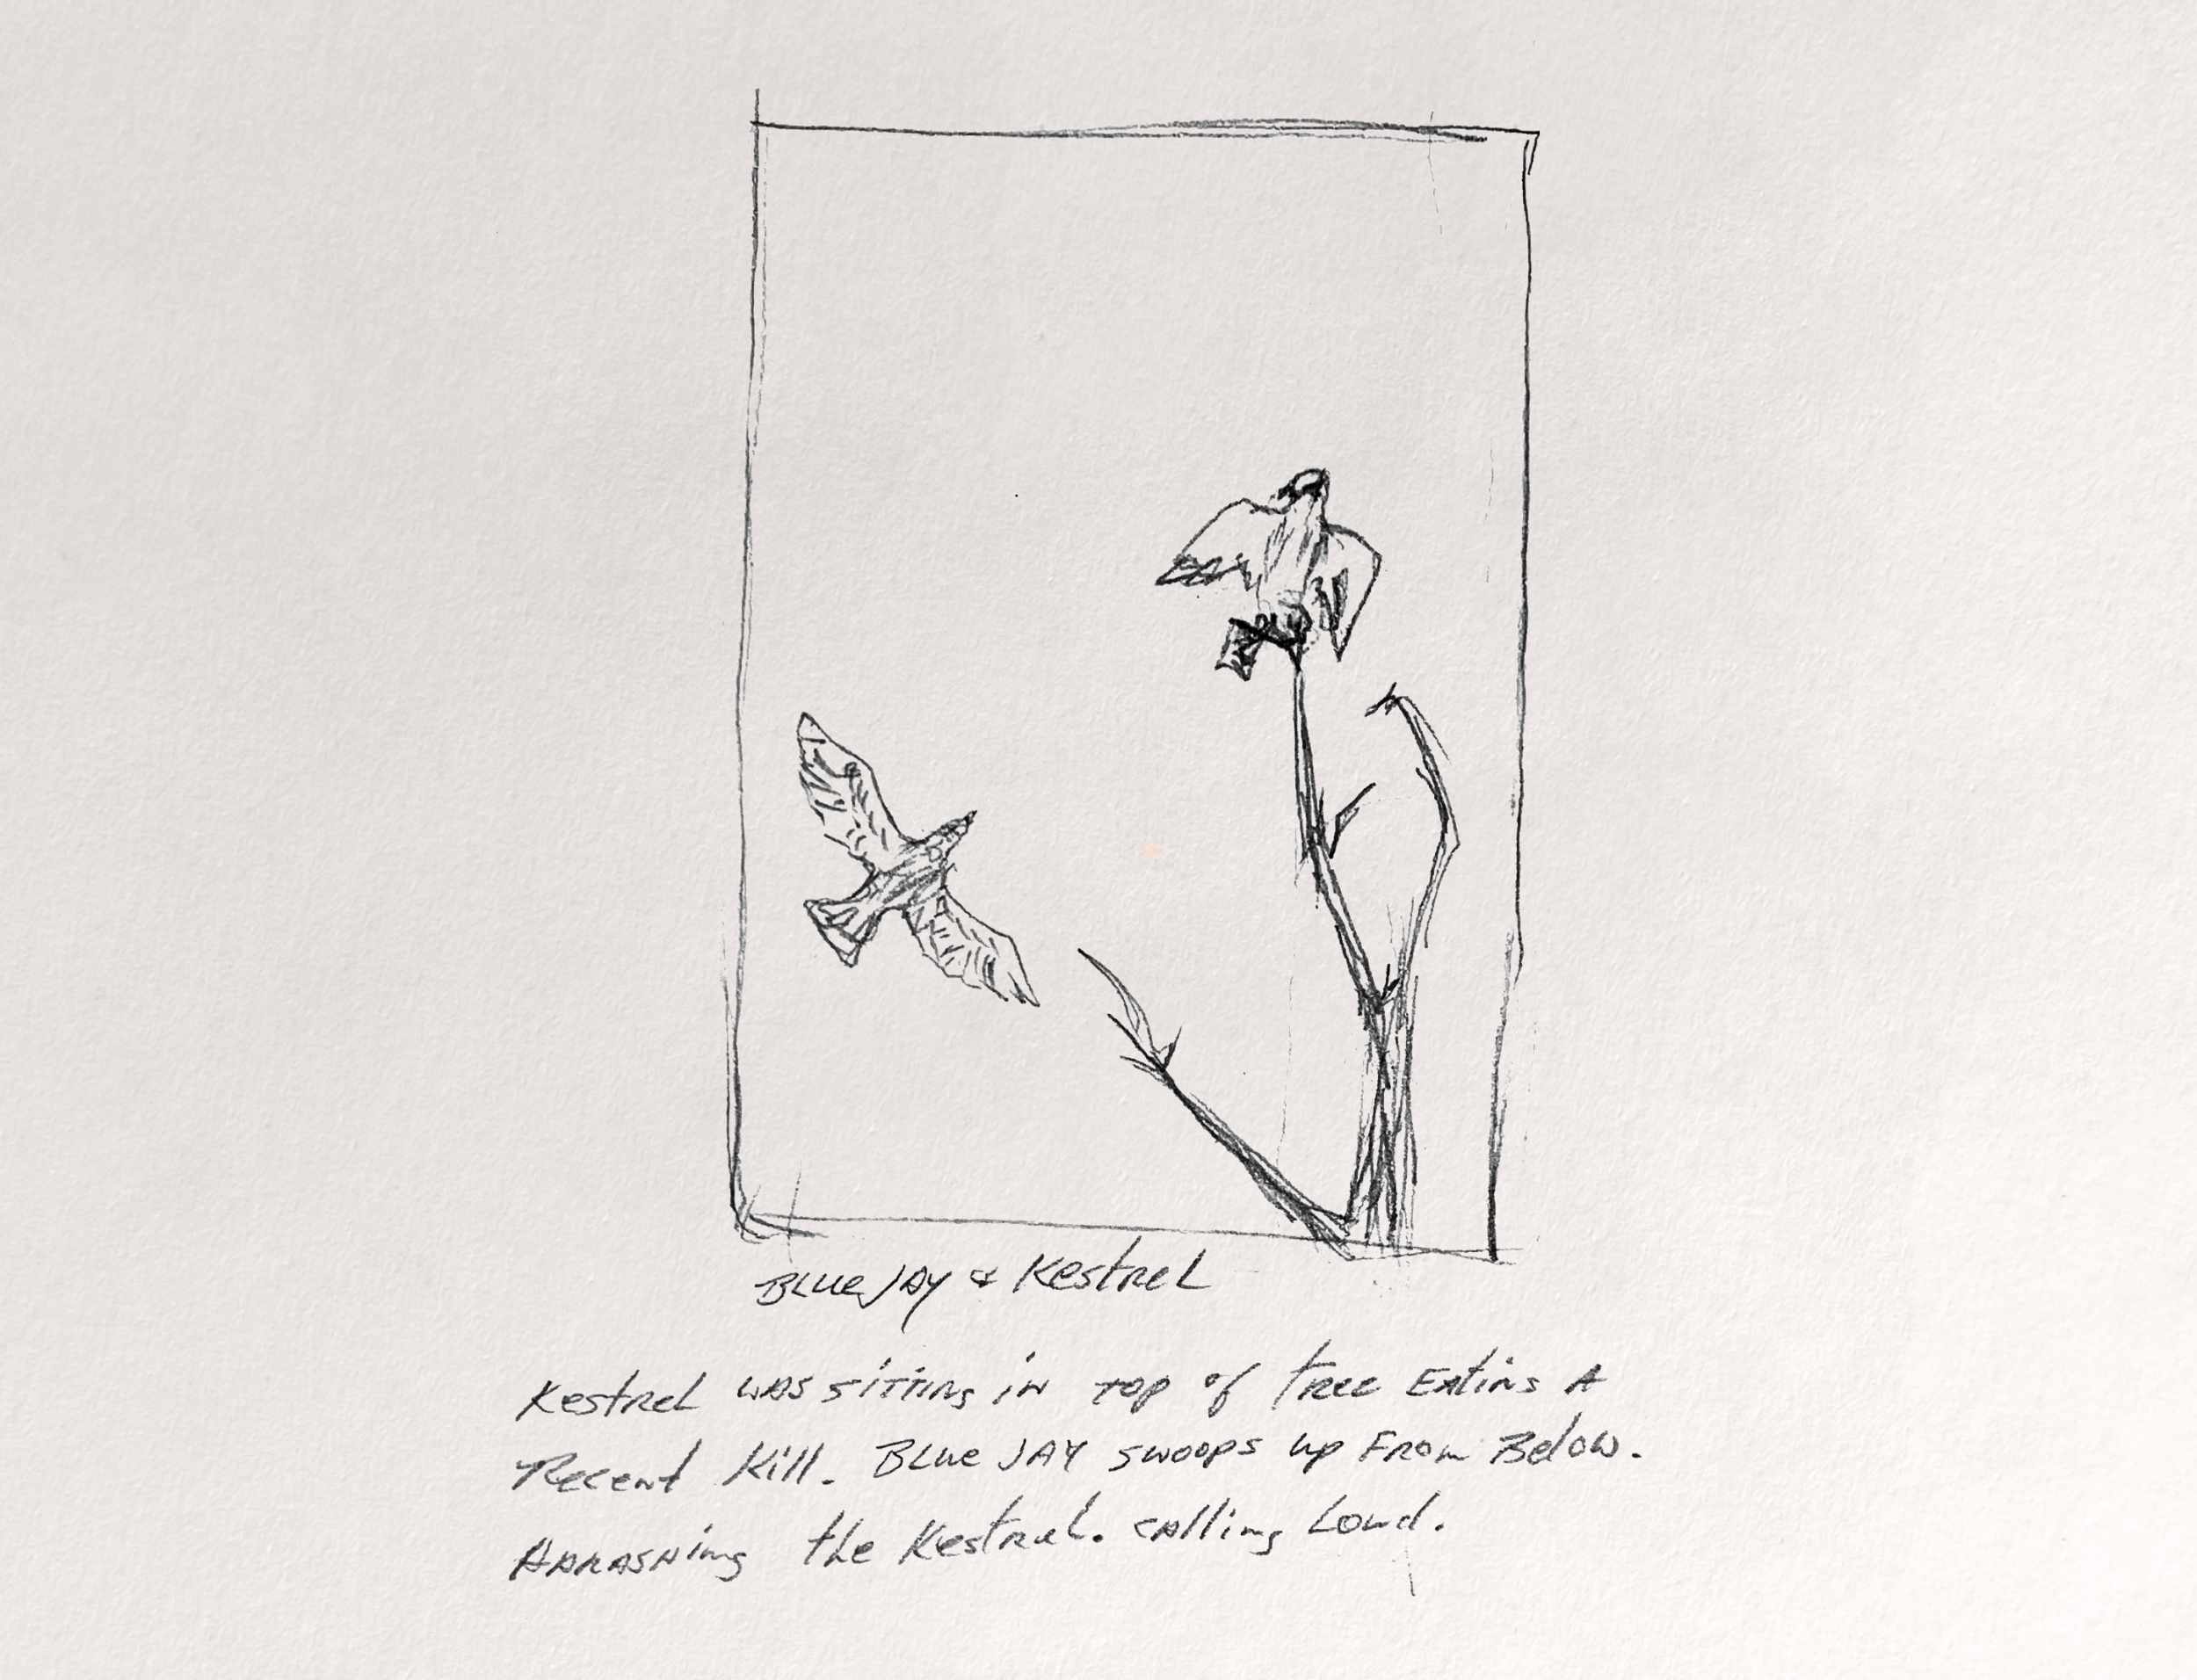 Blue Jay & Kestrel
Kestrel was sitting in top of tree Eating A
Recent Kill. Blue Jay swoops up From Below.
Harashing the Kestrel. calling Loud.